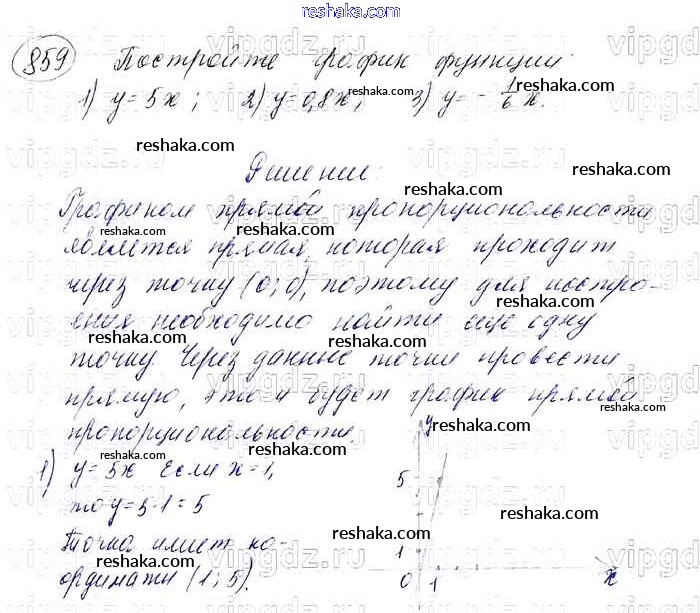 reshaka.com
859 Постройте график функции:
1) y=5x; 2) y=0,8x; 3) y=-1/6 x.
Решение:
Графиком прямой пропорциональности
является прямая, которая проходит
через точку (0;0), поэтому для постро-
ения необходимо найти еще одну
точку. Через данные точки провести
прямую, это и будет график прямой
пропорциональности.
1) y=5x Если x=1,
то y=5·1=5
Точка имеет ко-
ординаты (1; 5).
y
5
1
0 1 x